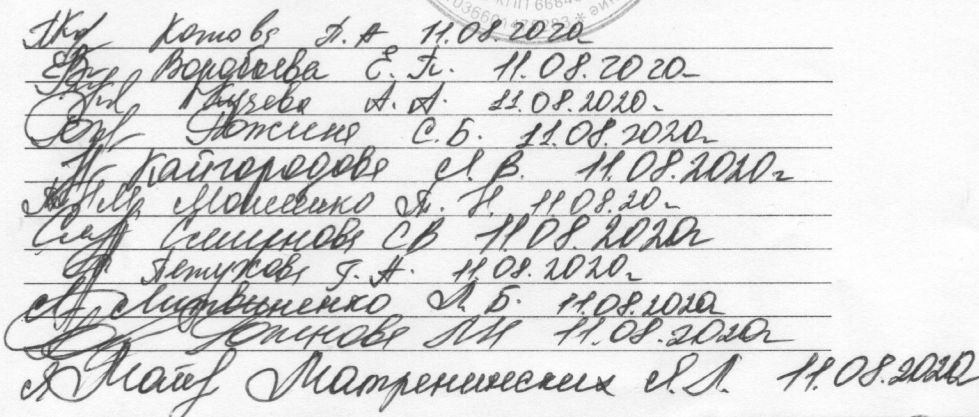 КПП 6684
036601476293 * ние
Котова Т.А 11.08.2020
Воробьева Е.П. 11.08.2020г
А.А. 11.08.2020г
С.Б. 11.08.2020г
Кайгородова Л.В. 11.08.2020г
Моисеенко Т.Н. 11.08.20г
Смирнова СВ 11.08.2020г
Петухова Г.А. 11.08.2020г
Литвиненко Л.Б. 11.08.2020г
11.08.2020г
Матренинских Л.Л. 11.08.2020г